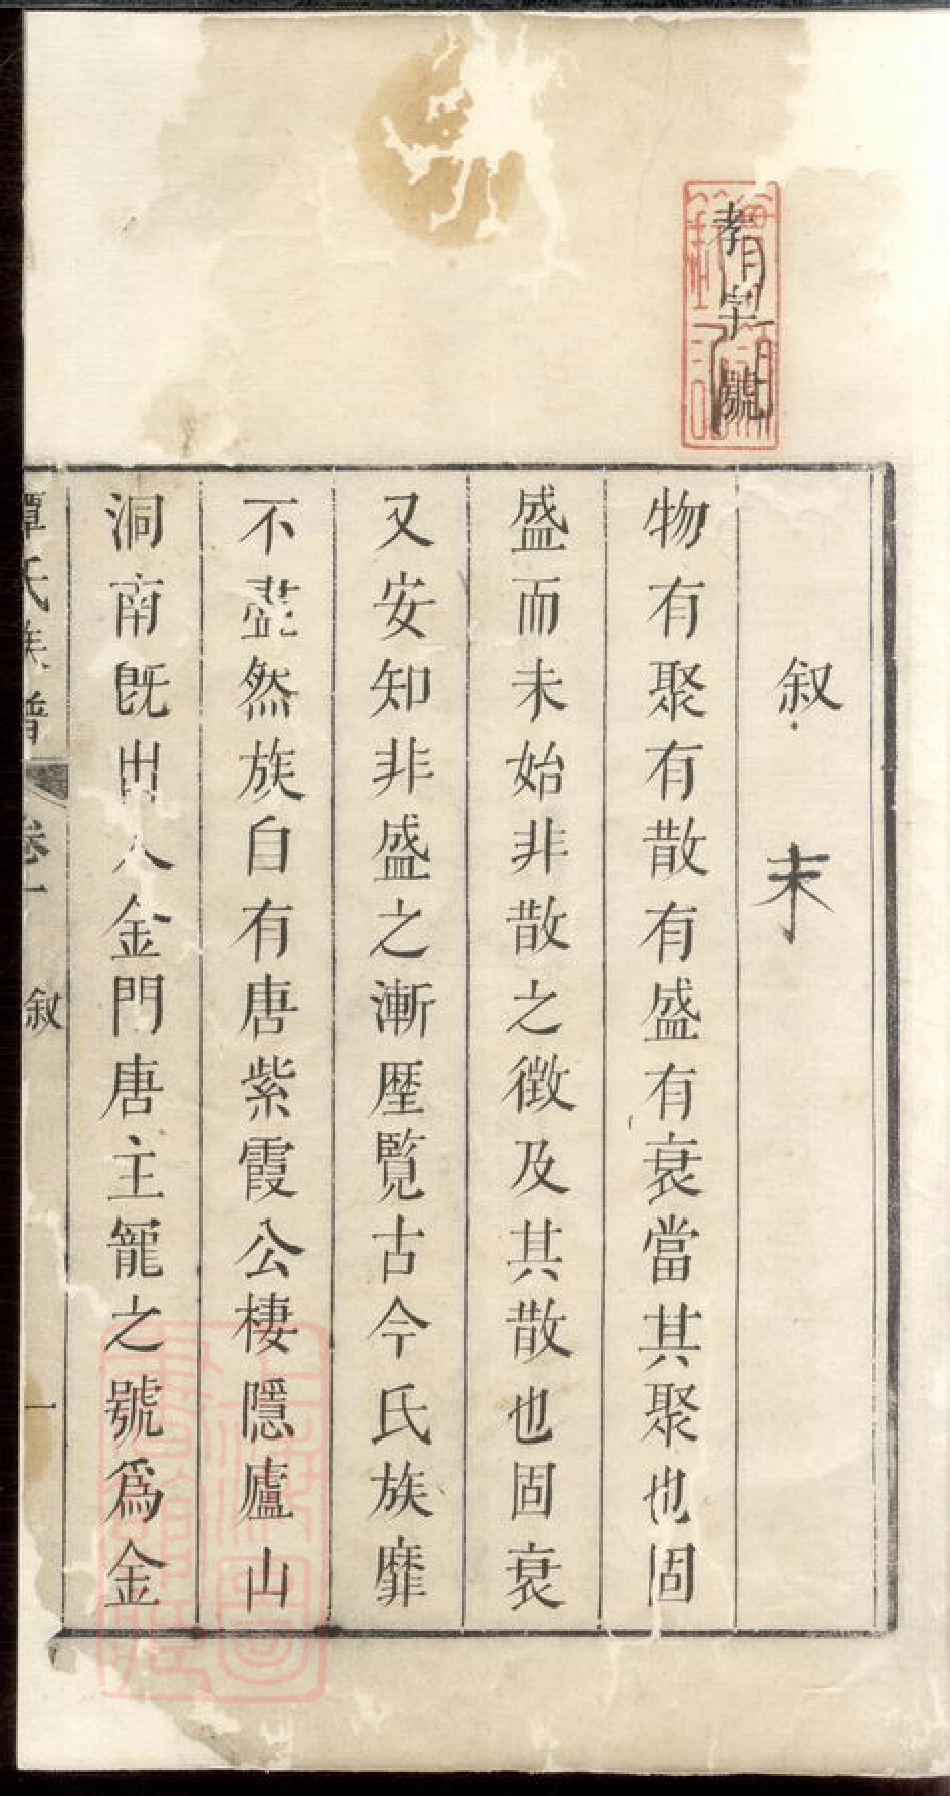 孝字號
叙末
物有聚有散有盛有衰當其聚也固
盛而未始非散之徵及其散也固衰
又安知非盛之漸歷覽古今氏族靡
不然族自有唐紫霞公棲隱廬山
洞南旣出入金門唐主寵之號爲金
譚氏族譜 卷一 叙 一